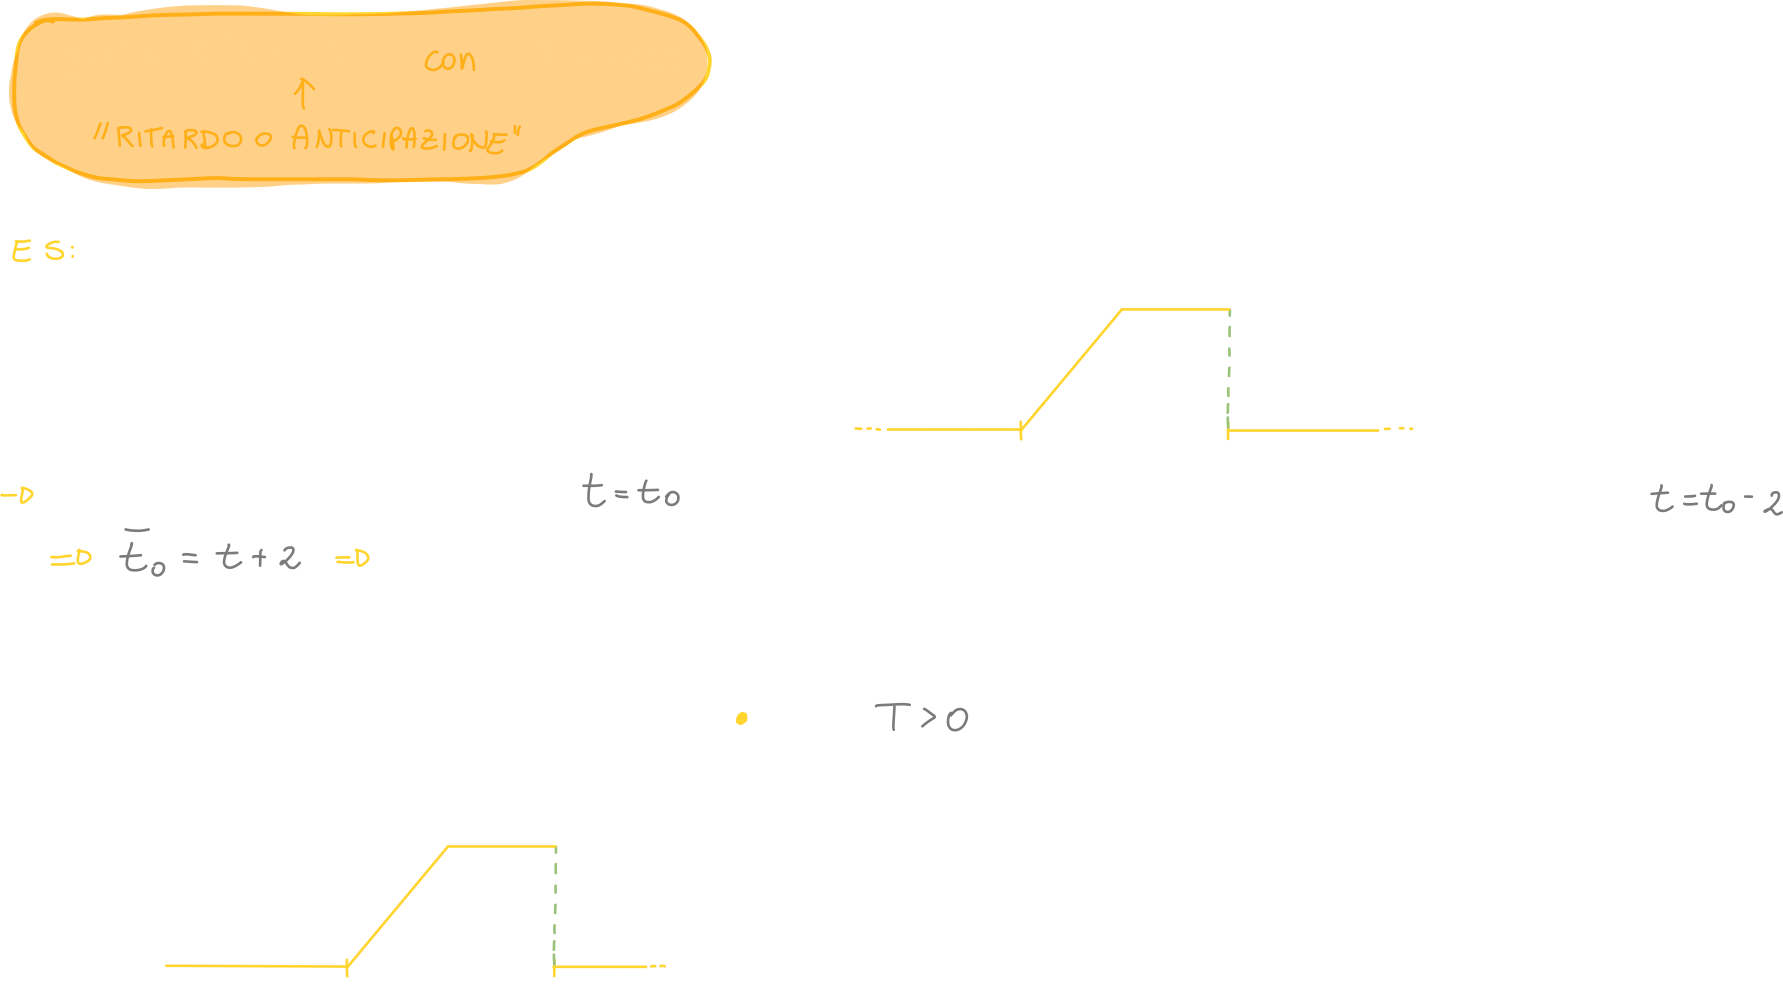 con
"RITARDO O ANTICIPAZIONE"
ES:
t = t₀ t = t₀ - 2
⇒ t̄₀ = t + 2 ⇒
T > 0